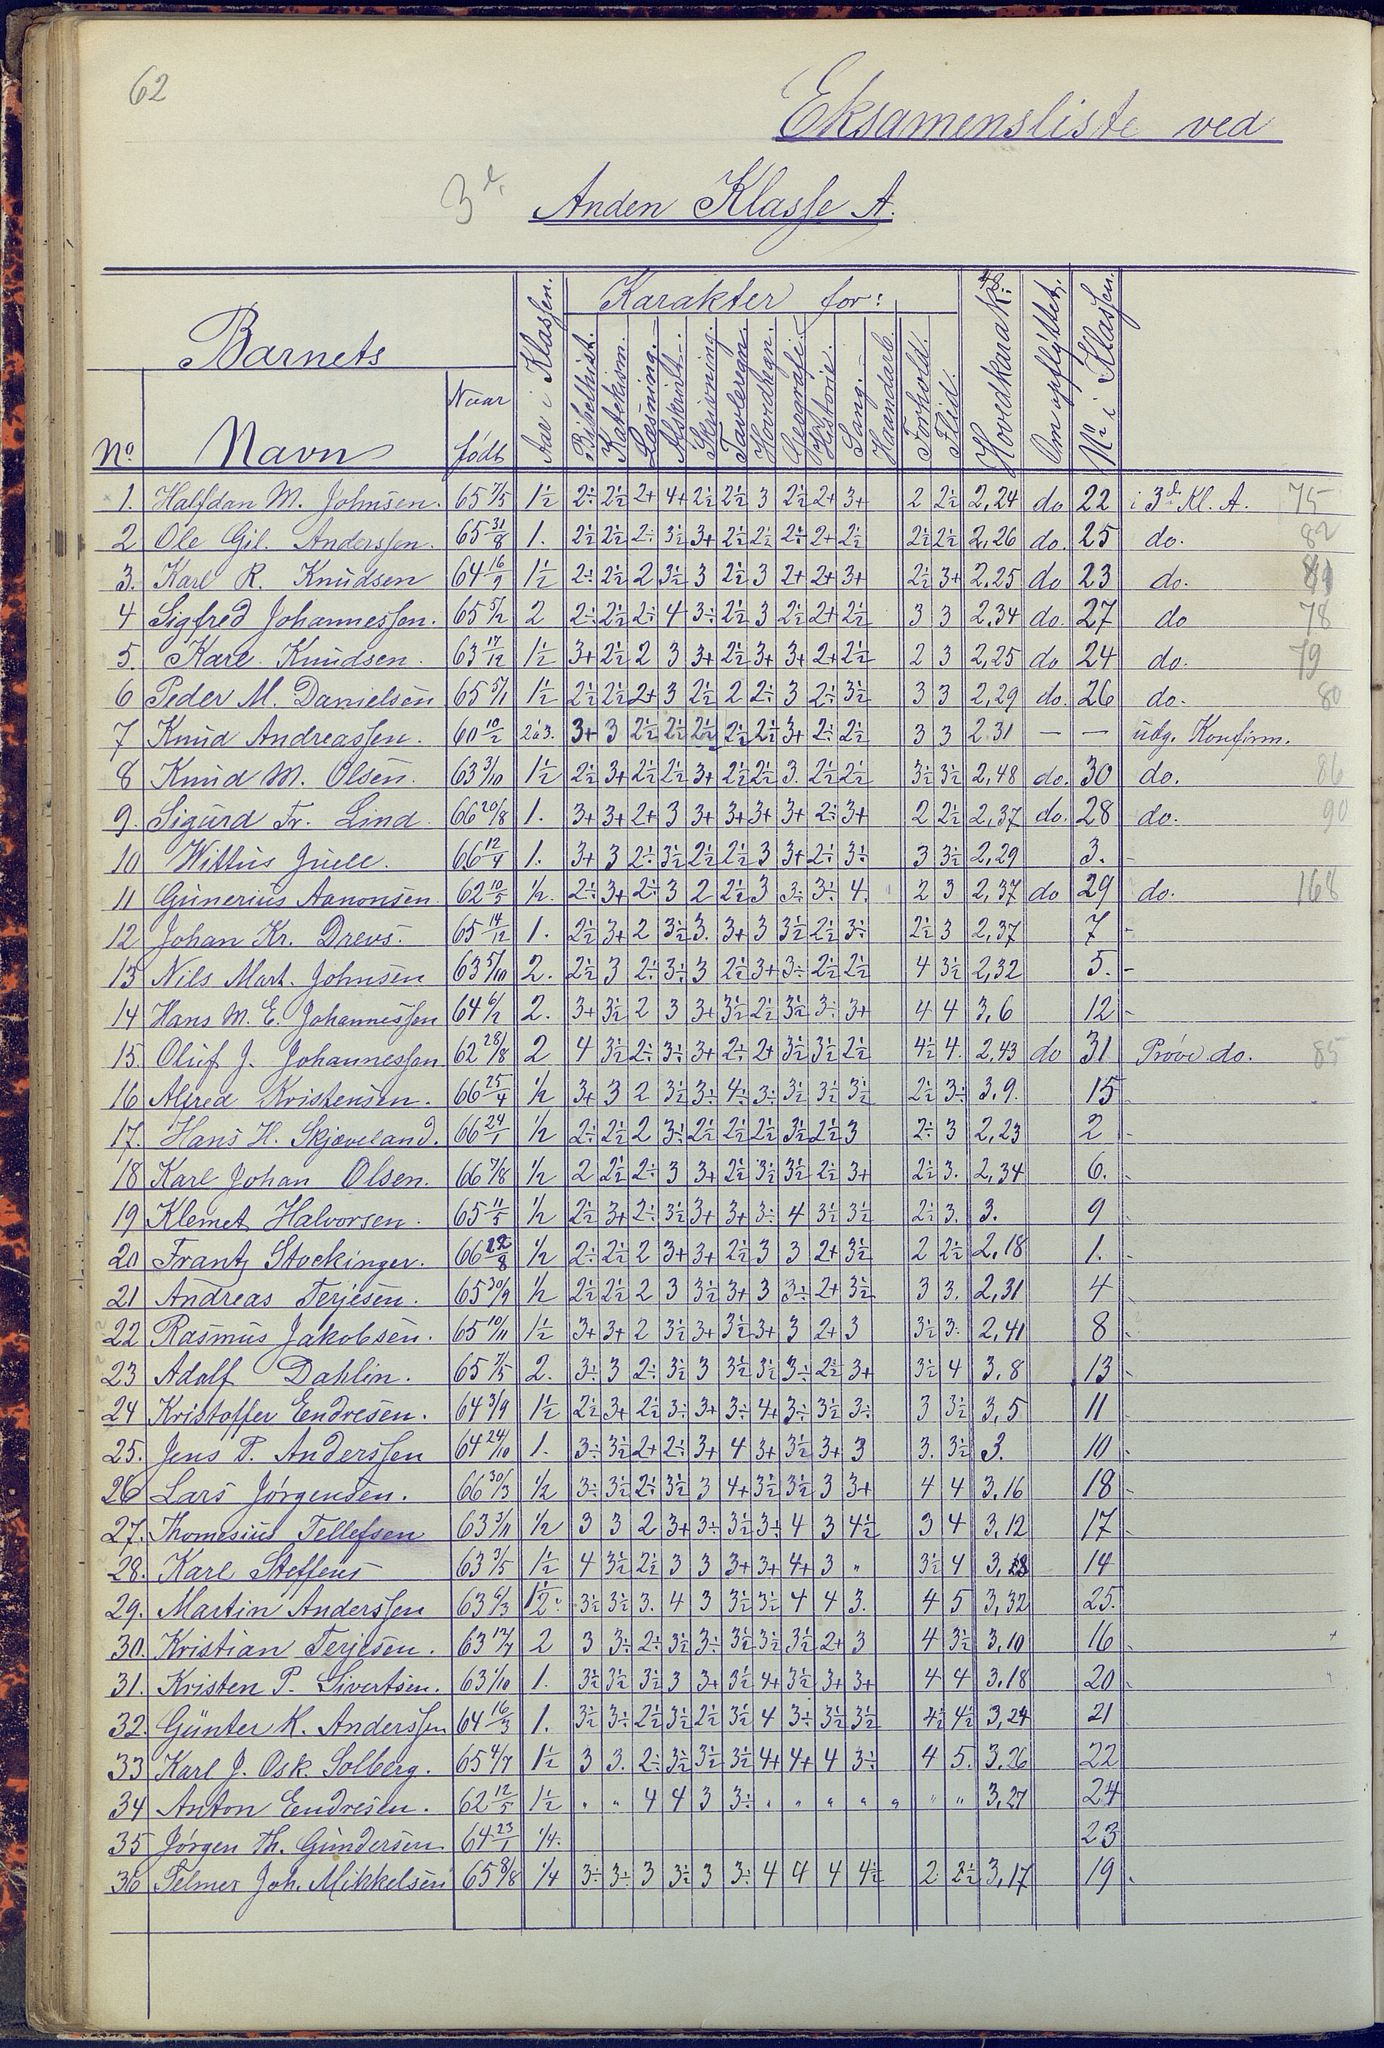 62
Eksamensliste ved
3d. Anden Klasse A.
Barnets Aar i Klassen. Karakter for: Hovedkarakt: Om opflyttet. No i Klassen.
No Navn Naar født Bibelhist. Katekism. Læsning. Afskrivt. Skrivning. Tavleregn. Hovdregn. Geografi. Historie. Sang. Haandarb. Forhold. Flid.
1. Halfdan M. Johnsen. 65 7/5 1½ 2÷ 2½ 2+ 4+ 2½ 2½ 3 2½ 2+ 3+ 2 2½ 2,24 do 22 i 3die Kl. A. 75
2 Ole Gil. Anderssen. 65 31/8 1. 2½ 2½ 2÷ 3½ 3+ 2½ 2½ 2÷ 2+ 2½ 2½ 2½ 2,26 do. 25 do. 82
3. Karl R. Knudsen 64 16/9 1½ 2÷ 2½ 2 3½ 3 2½ 3 2+ 2+ 3+ 2½ 3+ 2,25 do 23 do. 81
4 Sigfred Johannessen. 65 5/2 2 2÷ 2½ 2÷ 4 3÷ 2½ 3 2½ 2+ 2½ 3 3 2,34 do. 27 do 78
5. Karl Knudsen. 63 17/12 1½ 3+ 2½ 2 3 3+ 2½ 3+ 3+ 2+ 2½ 2 3 2,25 do 24 do. 79
6 Peder M. Danielsen 65 5/1 1½ 2½ 2½ 2+ 3 2½ 2 2÷ 3 2÷ 3½ 3 3 2,29 do. 26 do. 80
7 Knud Andreassen. 60 10/2 2à3. 3+ 3 2½ 2½ 2½ 2½ 2½ 3+ 2÷ 2½ 3 3 2.31 — — udg. Konfirm.
8 Knud M. Olsen. 63 3/10 1½ 2½ 3+ 2½ 2½ 3+ 2½ 2½ 3. 2½ 2½ 3½ 3½ 2,48 do. 30 do. 86
9. Sigurd Fr. Lind 66 20/8 1. 3+ 3+ 2+ 3 3+ 3+ 3+ 3+ 2÷ 3+ 2 2½ 2,37 do. 28 do. 90
10 Wittus Juell 66 12/4 1. 3+ 3 2÷ 3½ 2½ 2½ 3 3+ 2÷ 3÷ 3 3½ 2,29 3. -
11 Gunerius Aanonsen. 62 10/5 ½. 2÷ 3+ 2÷ 3 2 2½ 3 3÷ 3÷ 4. 2 3 2,37 do 29 do. 168
12 Johan Kr. Drevs. 65 14/12 1. 2½ 3+ 2 3½ 3. 3+ 3 3½ 2½ 3÷ 2½ 3 2,37 7 -
13 Nils Mart. Johnsen 63 5/10 2. 2½ 3 2÷ 3÷ 3 2½ 3+ 3÷ 2½ 2½ 4 3½ 2,32 5. -
14 Hans M. E. Johannessen 64 6/2 2. 3+ 3½ 2 3 3+ 3½ 2½ 3½ 3÷ 3+ 4 4 3,6 12 -
15. Oluf J. Johannessen 62 28/8 2 4 3½ 2÷ 3÷ 3+ 2÷ 2+ 3½ 3½ 2½ 4½ 4. 2,43 do 31 Prøve do. 85
16 Alfred Kristensen. 66 25/4 ½ 3+ 3 2 3½ 3÷ 4÷ 3÷ 3½ 3½ 3½ 2½ 3÷ 3,9. 15
17. Hans H. Skjæveland. 66 24/1 ½ 2÷ 2½ 2 3÷ 2½ 2½ 2½ 3½ 2½ 3 2÷ 3 2,23 2 -
18 Karl Johan Olsen. 66 7/8 ½ 2 2½ 2÷ 3 3+ 2½ 3½ 3½ 2½ 3+ 2½ 3. 2,34 6.
19 Klemet Halvorsen. 65 11/5 ½ 2½ 3+ 2÷ 3½ 3+ 3+ 3÷ 4 3½ 3½ 2½ 3. 3. 9
20 Frantz Stockinger. 66 22/8 ½ 2÷ 2½ 2 3+ 3+ 2½ 3 3 2+ 3½ 2 2½ 2,18 1.
21 Andreas Terjesen. 65 30/9 ½ 2½ 2½ 2 3 3½ 3+ 3 3÷ 2+ 3½ 3 3. 2,31 4
22 Rasmus Jakobsen. 65 10/11 1½ 3+ 3+ 2 3½ 3+ 3½ 3+ 3 2+ 3 3½ 3. 2,41 8
23 Adolf Dahlin. 65 7/5 2. 3÷ 3 2÷ 3½ 3 3½ 3½ 3÷ 2½ 3+ 3½ 4 3,8 13
24 Kristoffer Endresen. 64 3/9 1½ 2½ 3+ 2½ 3÷ 3+ 3÷ 4+ 3÷ 3½ 3÷ 3 3½ 3,5 11
25. Jens P. Anderssen 64 24/10 1. 3÷ 3½ 2+ 2÷ 3+ 4 3+ 3½ 3+ 3 3. 3½ 3. 10
26 Lars Jørgensen. 66 30/3 ½ 3÷ 3½ 2÷ 3½ 3 4+ 3½ 3½ 3 3+ 4 4 3,16 18
27. Thomesius Tellefsen 63 3/11 ½ 3 3 2 3+ 3÷ 3½ 3÷ 4 3 4½ 3 4 3,12 17
28. Karl Steffens 63 3/5 1½ 4 3½ 2½ 3 3 3+ 3+ 4+ 3 " 3½ 4 3,8 14
29. Martin Anderssen 63 6/3 1½. 3½ 3½ 3. 4 3 3½ 3½ 4 4 3. 4 5 3,32 25.
30. Kristian Terjesen. 63 17/7 2 3 3÷ 2÷ 3½ 3÷ 3½ 3½ 3½ 2+ 3 4 3½ 3,10 16
31. Kristen P. Sivertsen. 63 1/10 1. 3½ 3½ 3½ 3 3+ 3½ 4+ 3½ 3+ 3+ 4 4 3,18 20
32. Günter K. Anderssen 64 16/3 1. 3½ 3÷ 2½ 3½ 2½ 3½ 4 3÷ 3½ 3½ 4½ 4½ 3,24 21
33 Karl J. Osk. Solberg. 65 4/7 1½ 3 3. 2÷ 3½ 3½ 3½ 4+ 4+ 4 3÷ 4 5. 3.26 22
34 Anton Endresen. 62 12/5 1½ " " 4 4 3 3÷ " " " " " " " 3,27 24
35 Jørgen Th. Gundersen 64 23/1 ¼. 23
36 Telmer Joh. Mikkelsen 65 8/8 ¼ 3÷ 3÷ 3 3½ 3 3÷ 4 4 4 4½ 2 2½ 3,17 19